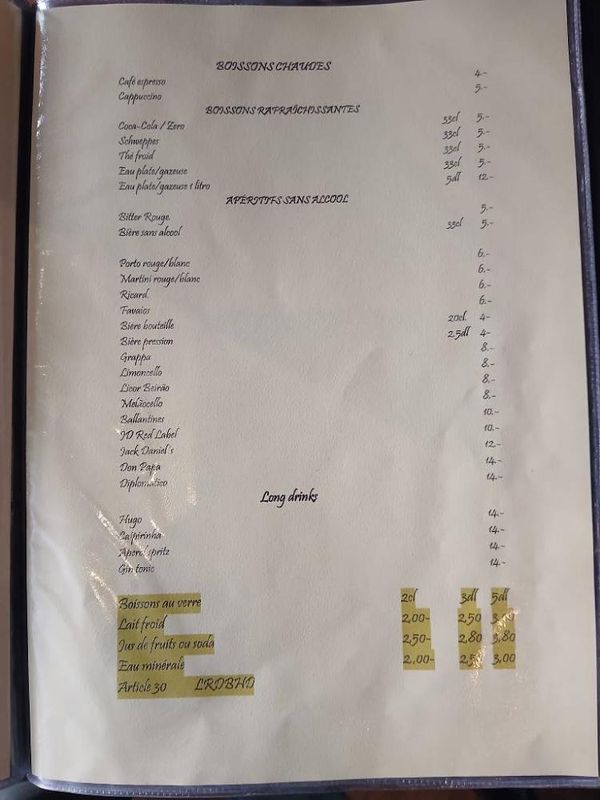 BOISSONS CHAUDES
Café espresso 4.-
Cappuccino 5.-
BOISSONS RAFRAÎCHISSANTES
Coca-Cola / Zero 33cl 5.-
Schweppes 33cl 5.-
Thé froid 33cl 5.-
Eau plate/gazeuse 33cl 5.-
Eau plate/gazeuse 1 litro 5dl 12.-
APÉRITIFS SANS ALCOOL
Bitter Rouge. 5.-
Bière sans alcool 33cl 5.-
Porto rouge/blanc 6.-
Martini rouge/blanc 6.-
Ricard. 6.-
Favaios 6.-
Bière bouteille 20cl. 4-
Bière pression 25dl 4-
Grappa 8.-
Limoncello 8.-
Licor Beirão 8.-
Melãocello 8.-
Ballantines 10.-
JD Red Label 10.-
Jack Daniel's 12.-
Don Papa 14.-
Diplomatico 14.-
Long drinks
Hugo 14.-
Caipirinha 14.-
Aperol spritz 14.-
Gin tonic 14.-
Boissons au verre 2cl 3dl 5dl
Lait froid 2,00- 2,50
Jus de fruits ou soda 2,50- 2,80 3,80
Eau minérale 2,00- 3,00
Article 30 LRDBHD